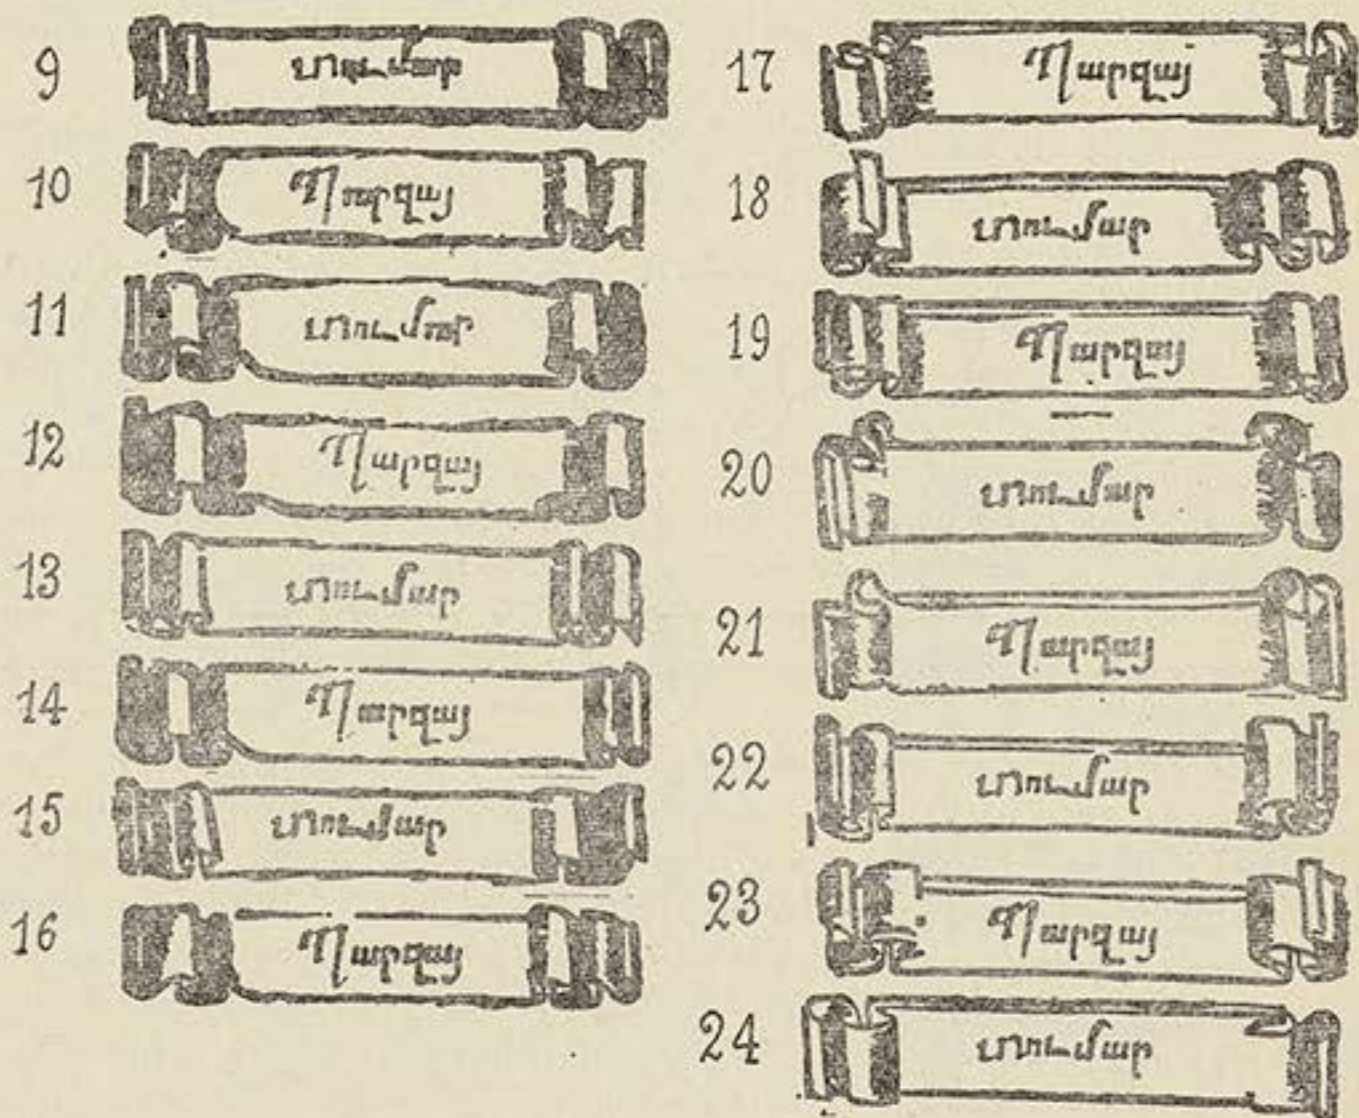 9 տումար
10 Պարզայ
11 տումար
12 Պարզայ
13 տումար
14 Պարզայ
15 տումար
16 Պարզայ
17 Պարզայ
18 տումար
19 Պարզայ
20 տումար
21 Պարզայ
22 տումար
23 Պարզայ
24 տումար